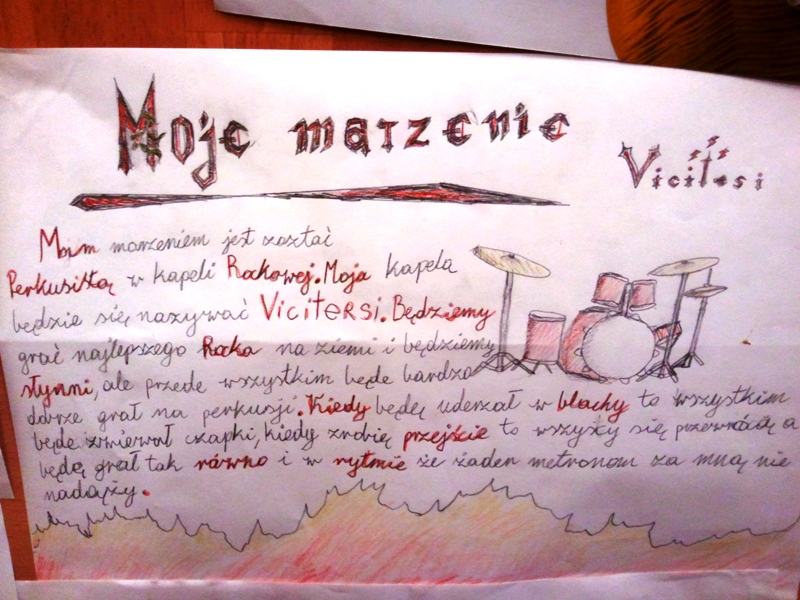 Moje marzenie
Vicitesi
Moim marzeniem jest zostać
Perkusistą w kapeli Rockowej. Moja kapela
będzie się nazywać Vicitersi. Będziemy
grać najlepszego Rocka na ziemi i będziemy
słynni, ale przede wszystkim będe bardzo
dobrze grał na perkusji. Kiedy będę uderzał w blachy to wszystkim
będe zrwiewał czapki, kiedy zrobię przejście to wszyscy się przewrócą a
będę grał tak równo i w rytmie że żaden metronom za mną nie
nadąży.